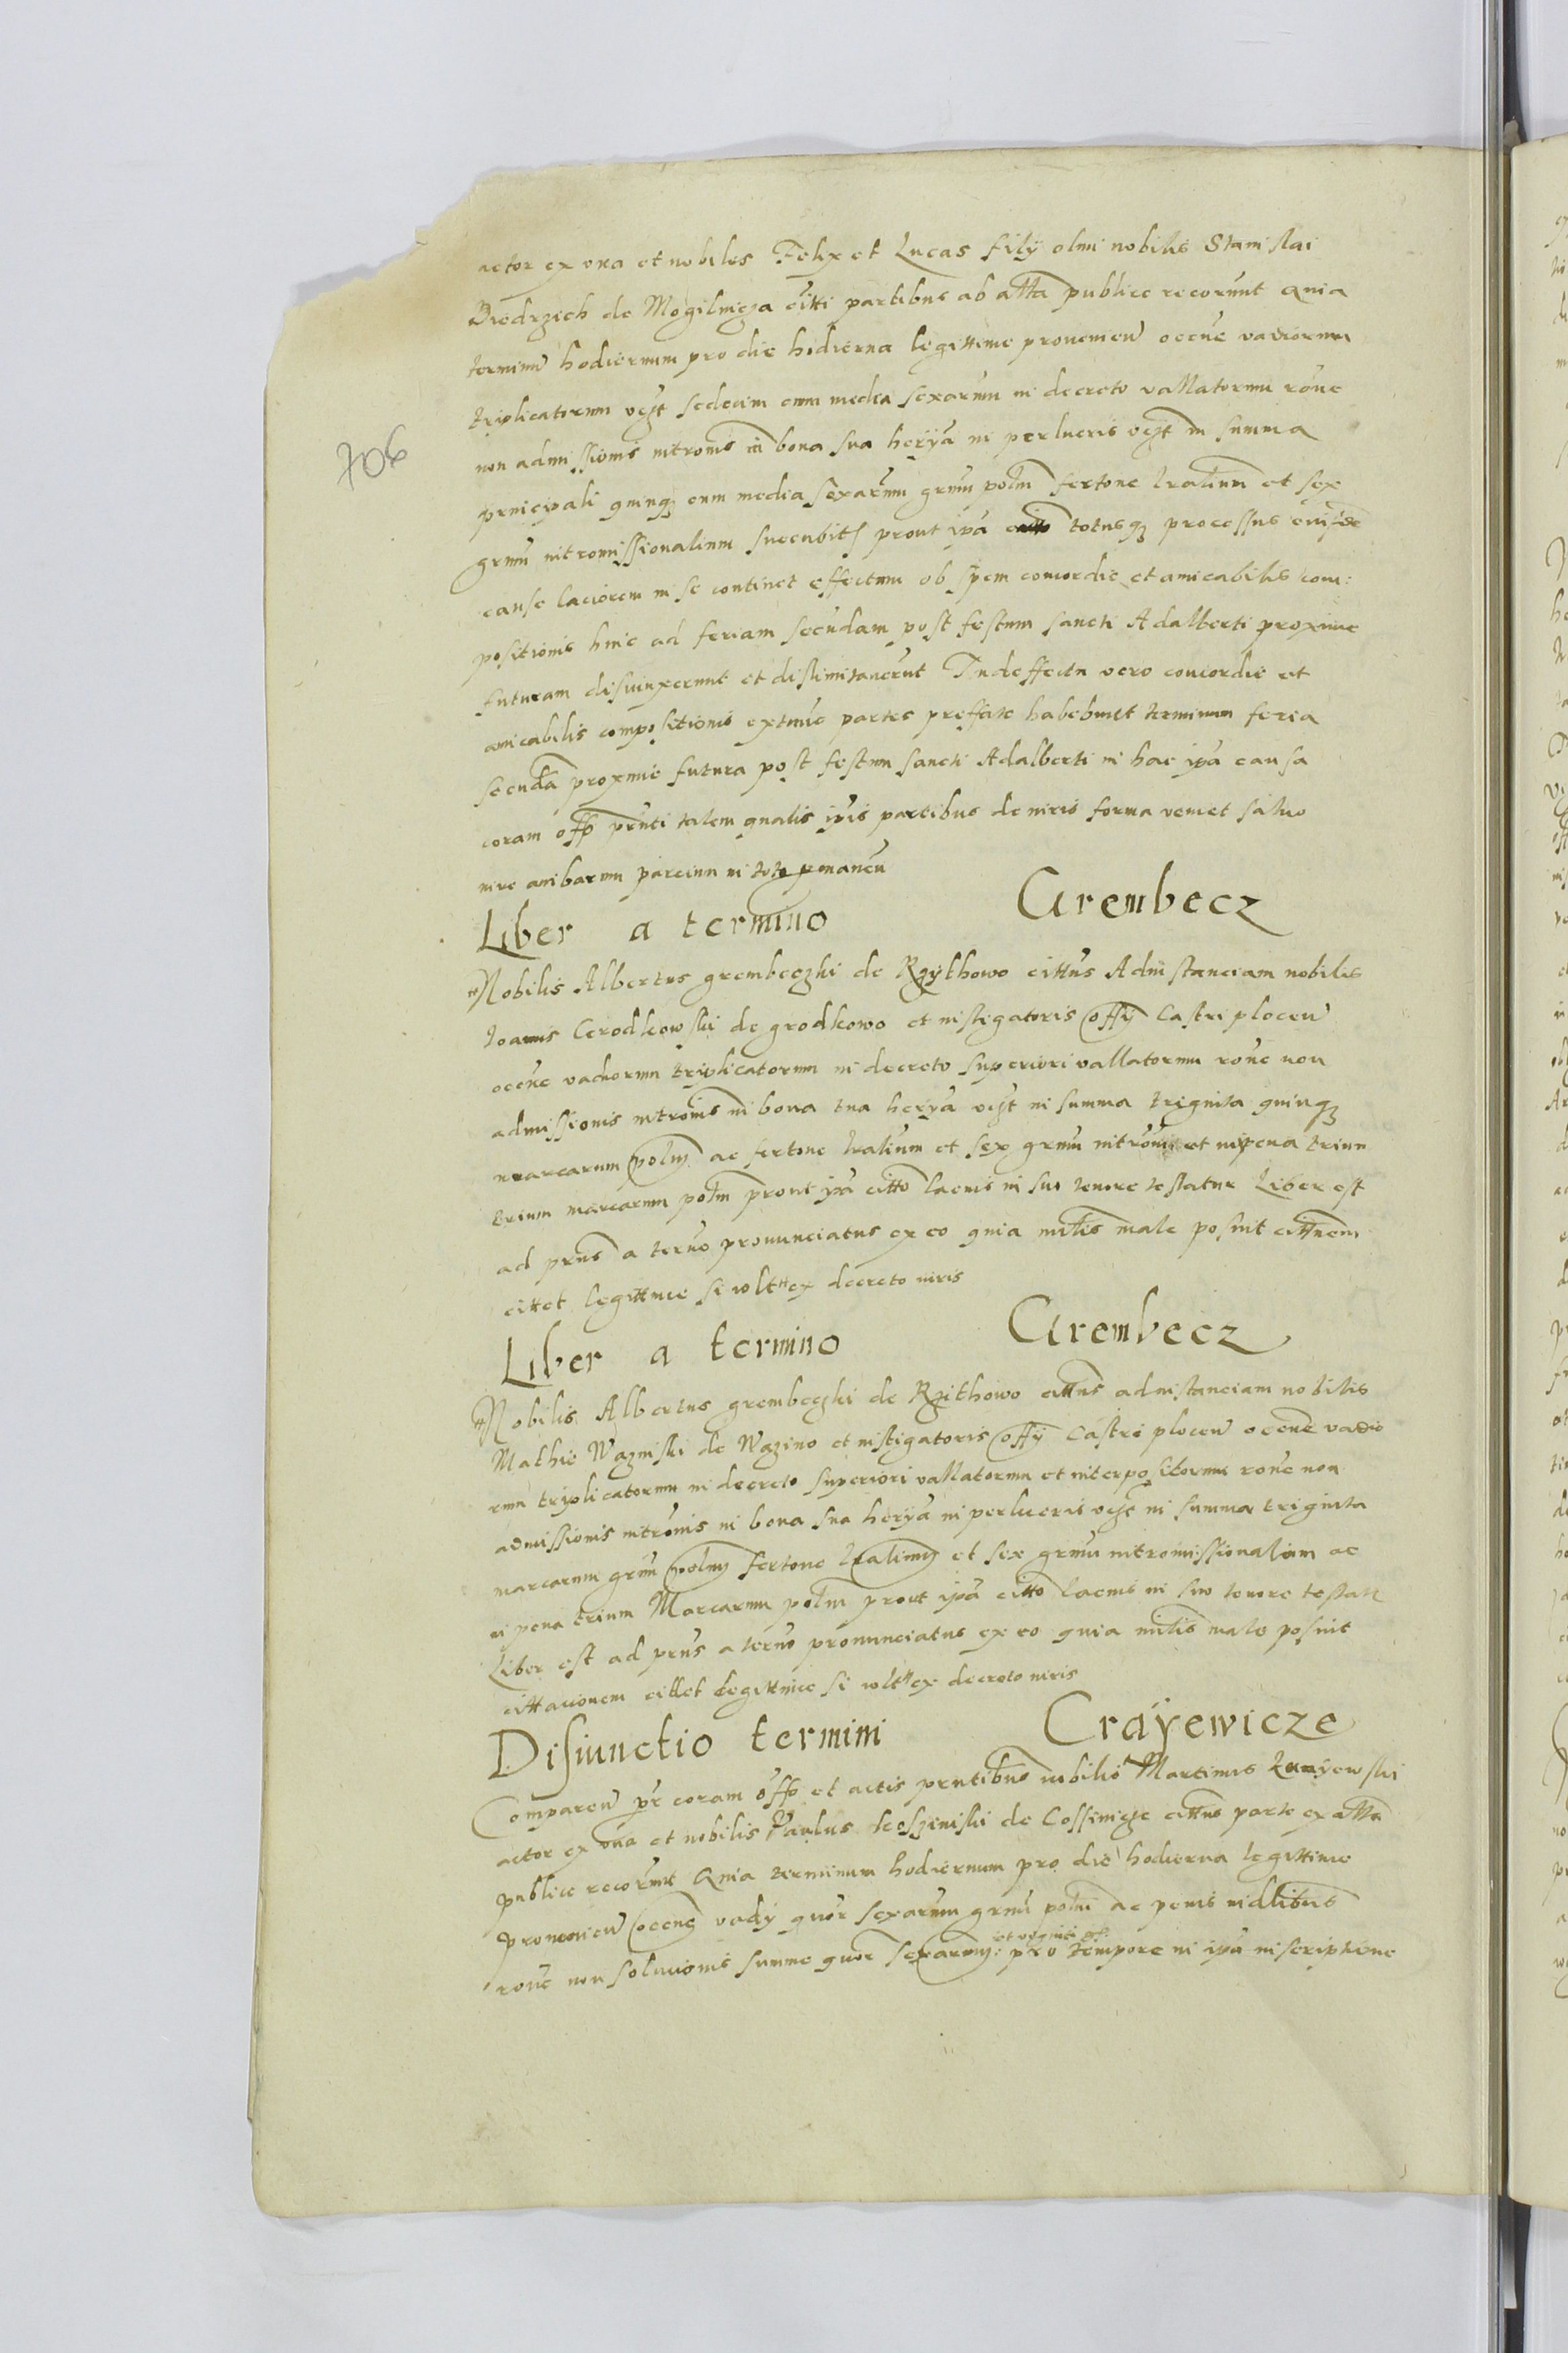 actor ex una et nobiles Felix et Lucas filÿ olmi nobilis Stanislai
Biedrzich de Mogilnicza citti partibus ab atta publice recorunt Quia
terminū hodiernum pro die hodierna legittime provenieñ occñe vadiorum
triplicatorum vẓt sedecim cum media sexarum in decreto vallatorum rõne
non admissionis intromis in bona sua herÿa in perlucris vẓt in summa
principali quinqꝫ cum media sexarum grmū polm fertone lralium et sex
grmū intromissionalium succubit prout ipā citto totusqꝫ processus eiusde
cause laciorem in se continet effectum ob spem concordie et amicabilis com:
positionis hinc ad feriam secundam post festum sancti Adalberti proxime
futuram disiunxerunt et dislimitaverunt In deffectu vero concordie et
amicabilis compositionis extunc partes preffate habebunt terminum feria
secundā proxime futura post festum sancti Adalberti in hac ipā causa
coram offō prnti talem qualis ipis partibus de iuris forma veniet salvo
iure ambarum parcium in toto pmaneñ
Liber a termino Grembecz
Nobilis Albertus grembeczki de Rzÿkhowo cittus Ad instanciam nobilis
Joannis Grodkowski de grodkowo et instigatoris offÿ Castri ploceñ
occñe vadiorum triplicatorum in decreto superiori vallatorum rõne non
admissionis intromis in bona tua herÿa vẓt in summa triginta quinqꝫ
marcarum polm ac fertone lralium et sex grmū intromis et in pena trium
trium marcarum polm prout ipā citto lacius in suo tenore testatur Liber est
ad prns a termo pronunciatus ex eo quia mitis male posuit cittnem
cittet legittime si volt ex decreto iuris
Liber a termino Grembecz
Nobilis Albertus grembeczki de Rzikhowo cittus ad instanciam nobilis
Mathie Nazinski de Nazino et instigatoris offÿ Castri ploceñ occñe vadio
rum triplicatorum in decreto superiori vallatorum et interpositorum rõne non
admissionis intromis in bona sua herÿa in perlucris vẓt in summa triginta
marcarum grmū polm fertone lralium et sex grmū intromissionalium ac
in pena trium Marcarum polm prout ipā citto lacius in suo tenore testatr
Liber est ad prns a termo pronunciatus ex eo quia mitis male posuit
cittacionem cittet legittime si volt ex decreto iuris
Disiunctio termini Craÿewicze
Compareñ pr coram offō et actis prntibus nobilis Martinus Kraÿewski
actor ex una et nobilis Paulus Coszinski de Cossinicze cittus parte ex atta
publice recorunt Quia terminum hodiernum pro die hodierna legittime
provenieñ occñe vadÿ quor sexarum grmū polm ac penis
et viginti gr:
rõne non solucionis summe quor sexarum: pro tempore in ipā inscriptione
706